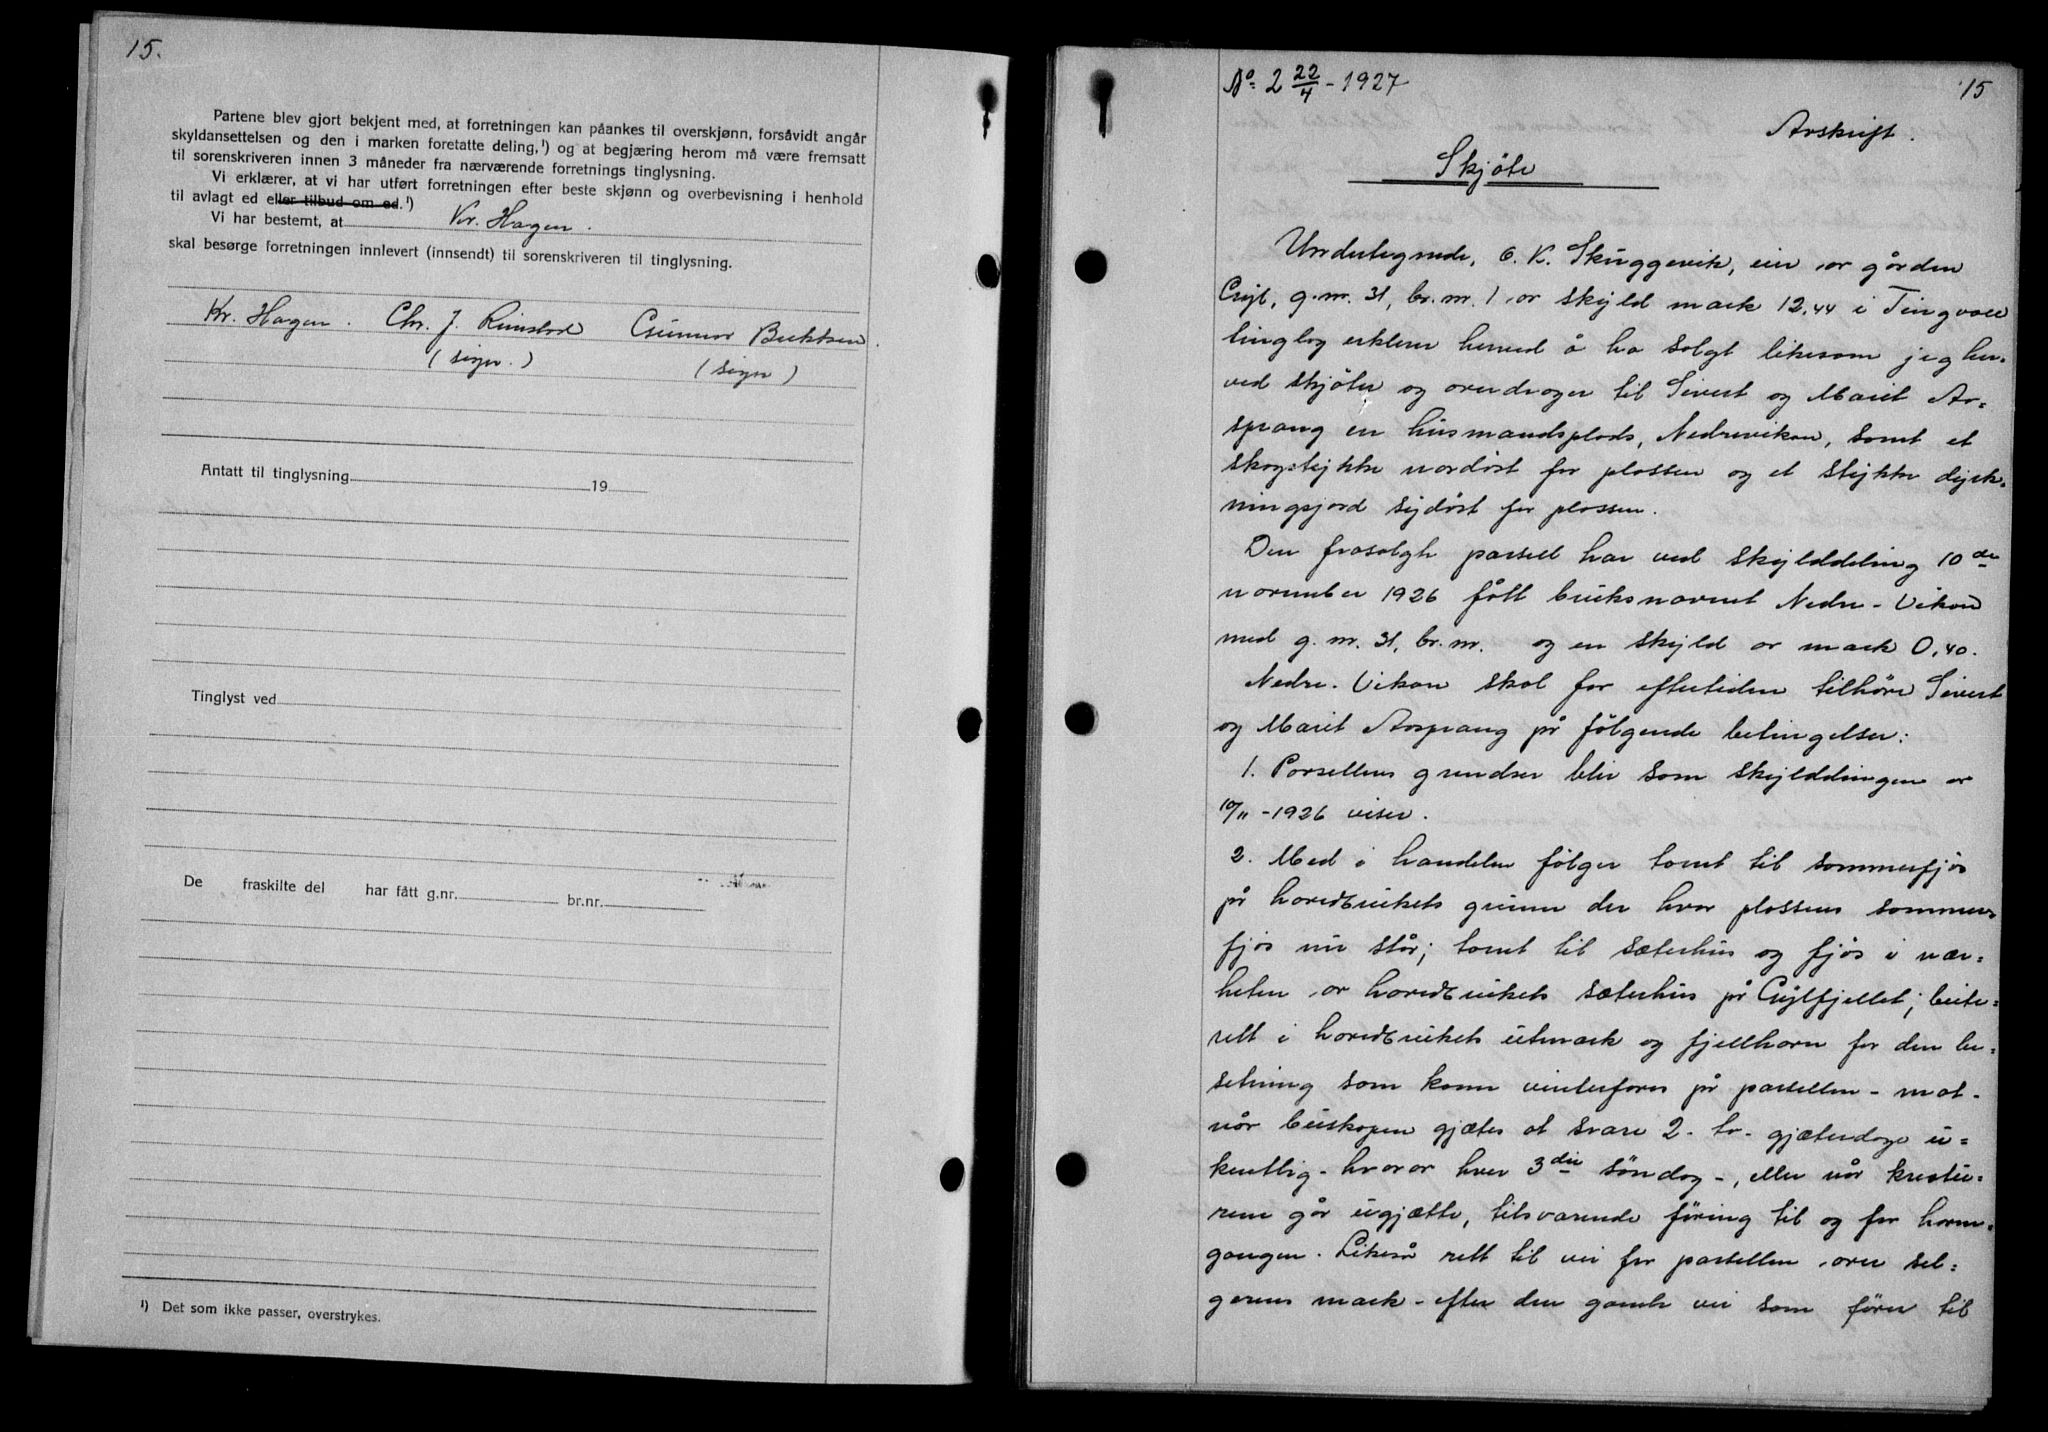 15.
Partene blev gjort bekjent med, at forretningen kan påankes til overskjønn, forsåvidt angår
skyldansettelsen og den i marken foretatte deling,¹) og at begjæring herom må være fremsatt
til sorenskriveren innen 3 måneder fra nærværende forretnings tinglysning.
Vi erklærer, at vi har utført forretningen efter beste skjønn og overbevisning i henhold
til avlagt ed eller tilbud om ed.¹)
Vi har bestemt, at Kr. Hagen.
skal besørge forretningen innlevert (innsendt) til sorenskriveren til tinglysning.
Kr. Hagen. Chr. J. Rimstad Gunnar Berktsen.
(sign.) (sign)
Antatt til tinglysning 19
Tinglyst ved
De fraskilte del har fått g.nr. br.nr.
¹) Det som ikke passer, overstrykes.
No 2 22/4 - 1927 15
Avskrift.
Skjöte
Undertegnede, O. K. Skuggevik, eier av gården
Gyl, g.nr. 31, br.nr. 1 av skyld mark 12.44 i Tingvoll
tinglag erklærer herved å ha solgt likesom jeg her-
ved skjöter og overdrager til Sivert og Marit Ar-
sprang en husmandsplads, Nedrevikan, samt et
skogstykke nordöst for plassen og et stykke dyrk-
ningsjord sydöst for plassen.
Den frasolgte parsell har ved skylddeling 10de
november 1926 fått bruksnavnet Nedre-Vikan
med g.nr. 31, br.nr. og en skyld av mark 0,40.
Nedre-Vikan skal for eftertiden tilhöre Sivert
og Marit Arsprang på fölgende betingelser:
1. Parsellens grendser blir som skylddelingen av
10/11 - 1926 viser.
2. Med i handelen fölger tomt til sommerfjös
på hovedbrukets grunn der hvor plassens sommer-
fjös nu står; tomt til sæterhus og fjös i nær-
heten av hovedbrukets sæterhus på Gylfjellet; beite-
rett i hovedbrukets utmark og fjellhavn for den be-
setning som kann vinterfores på parsellen - mot
når buskapen gjætes at svare 2 - to - gjæterdage u-
kentlig - hvorav hver 3die söndag -, eller når kreatu-
rene går ugjætte, tilsvarende föring til og fra havne-
gangen. Likeså rett til vei for parsellen over sel-
gerens mark - efter den gamle vei som förer til